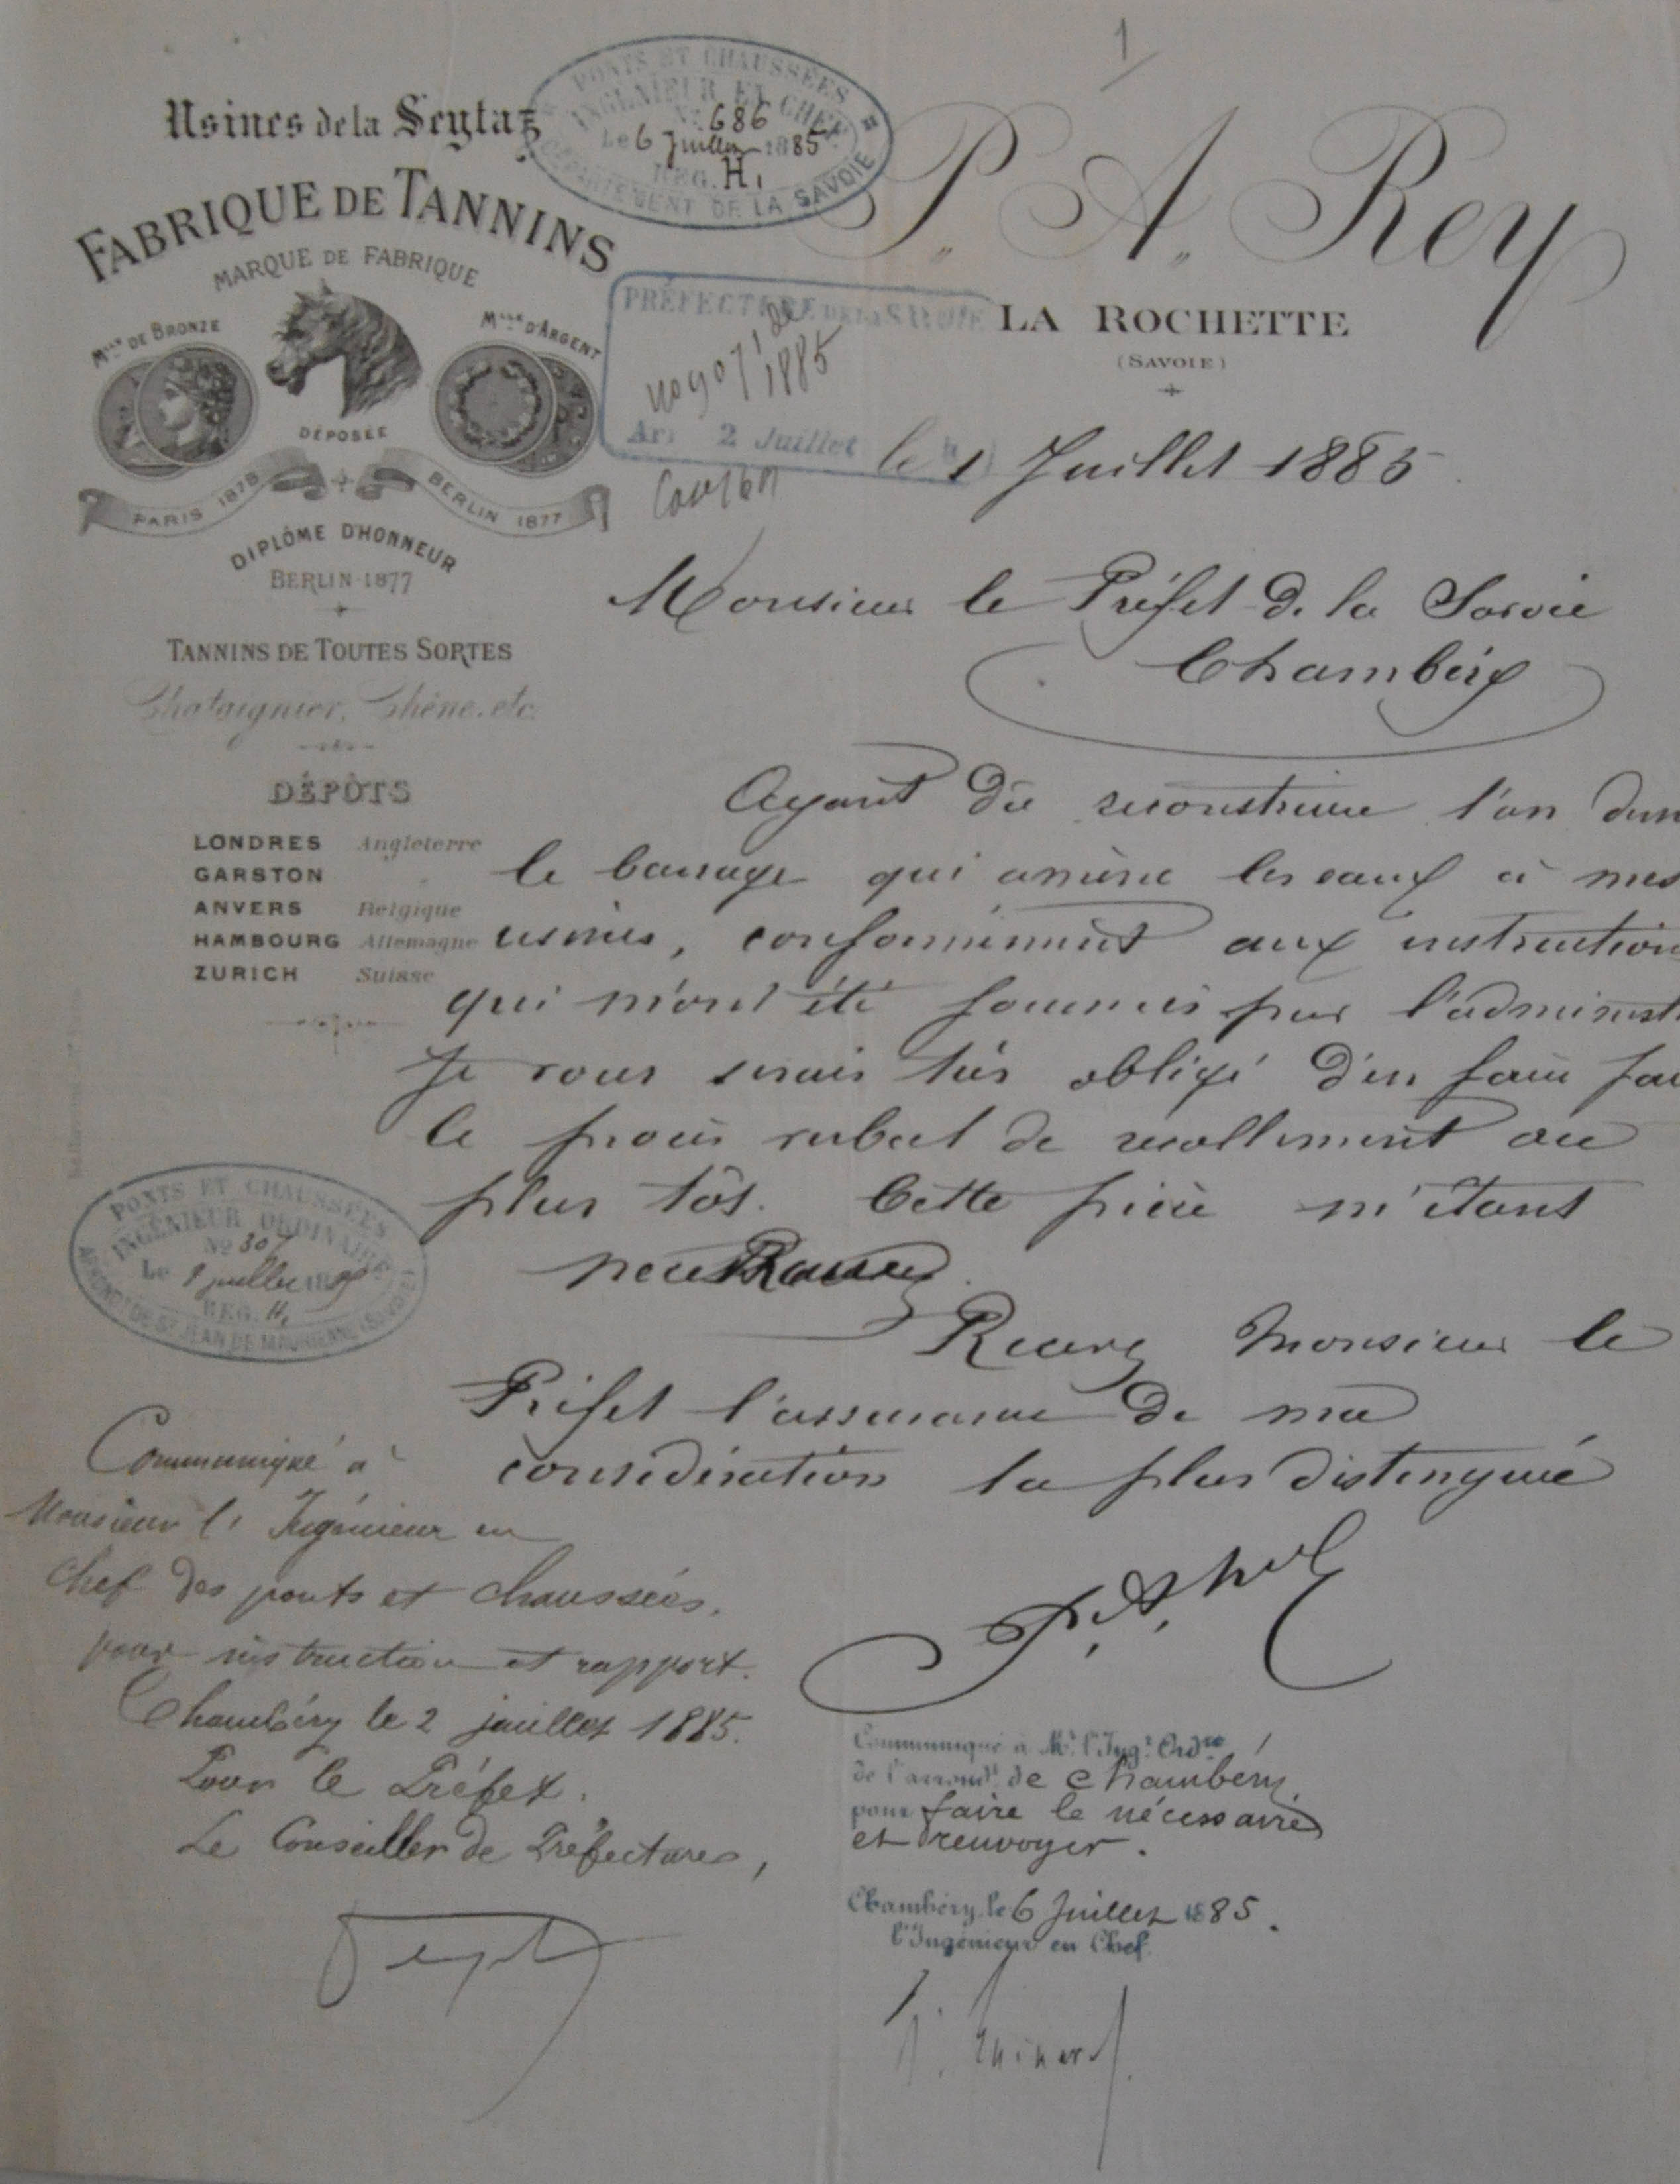 1
Usines de la Seytaz
FABRIQUE DE TANNINS
MARQUE DE FABRIQUE
Mlle DE BRONZE
Mlle D'ARGENT
DÉPOSÉE
PARIS 1878
BERLIN 1877
DIPLÔME D'HONNEUR
BERLIN 1877
TANNINS DE TOUTES SORTES
Chataignier, Chêne, etc.
DÉPÔTS
LONDRES Angleterre
GARSTON
ANVERS Belgique
HAMBOURG Allemagne
ZURICH Suisse
PONTS ET CHAUSSÉES
INGÉNIEUR EN CHEF
No 686
Le 6 Juillet 1885
REG. H.
DÉPARTEMENT DE LA SAVOIE
P. A. Rey
LA ROCHETTE
(SAVOIE)
PRÉFECTURE DE LA SAVOIE
1885
Ar. 2 Juillet
le 1 Juillet 1885
Monsieur le Préfet de la Savoie
Chambéry
Ayant dû reconstruire l'an dern
le barrage qui amène les eaux à mes
usines, conformément aux instruction
qui m'ont été fournies par l'administ
Je vous serais très obligé d'en faire fai
le procès verbal de recollement au
plus tôt. Cette pièce m'étant
Recevez Monsieur le
Préfet l'assurance de ma
considération la plus distinguée
PONTS ET CHAUSSÉES
INGÉNIEUR ORDINAIRE
No 307
Le juillet
REG. H.
ARRONDt DE St JEAN DE MAURIENNE (SAVOIE)
Communiqué à
Monsieur l'Ingénieur en
Chef des ponts et chaussées,
pour instruction et rapport.
Chambéry le 2 juillet 1885.
Pour le Préfet.
Le Conseiller de Préfecture,
Communiqué à Mr l'Ingr Ordre
de l'arrondt de Chambéry
pour faire le nécessaire
et renvoyer.
Chambéry, le 6 Juillet 1885.
l'Ingénieur en Chef